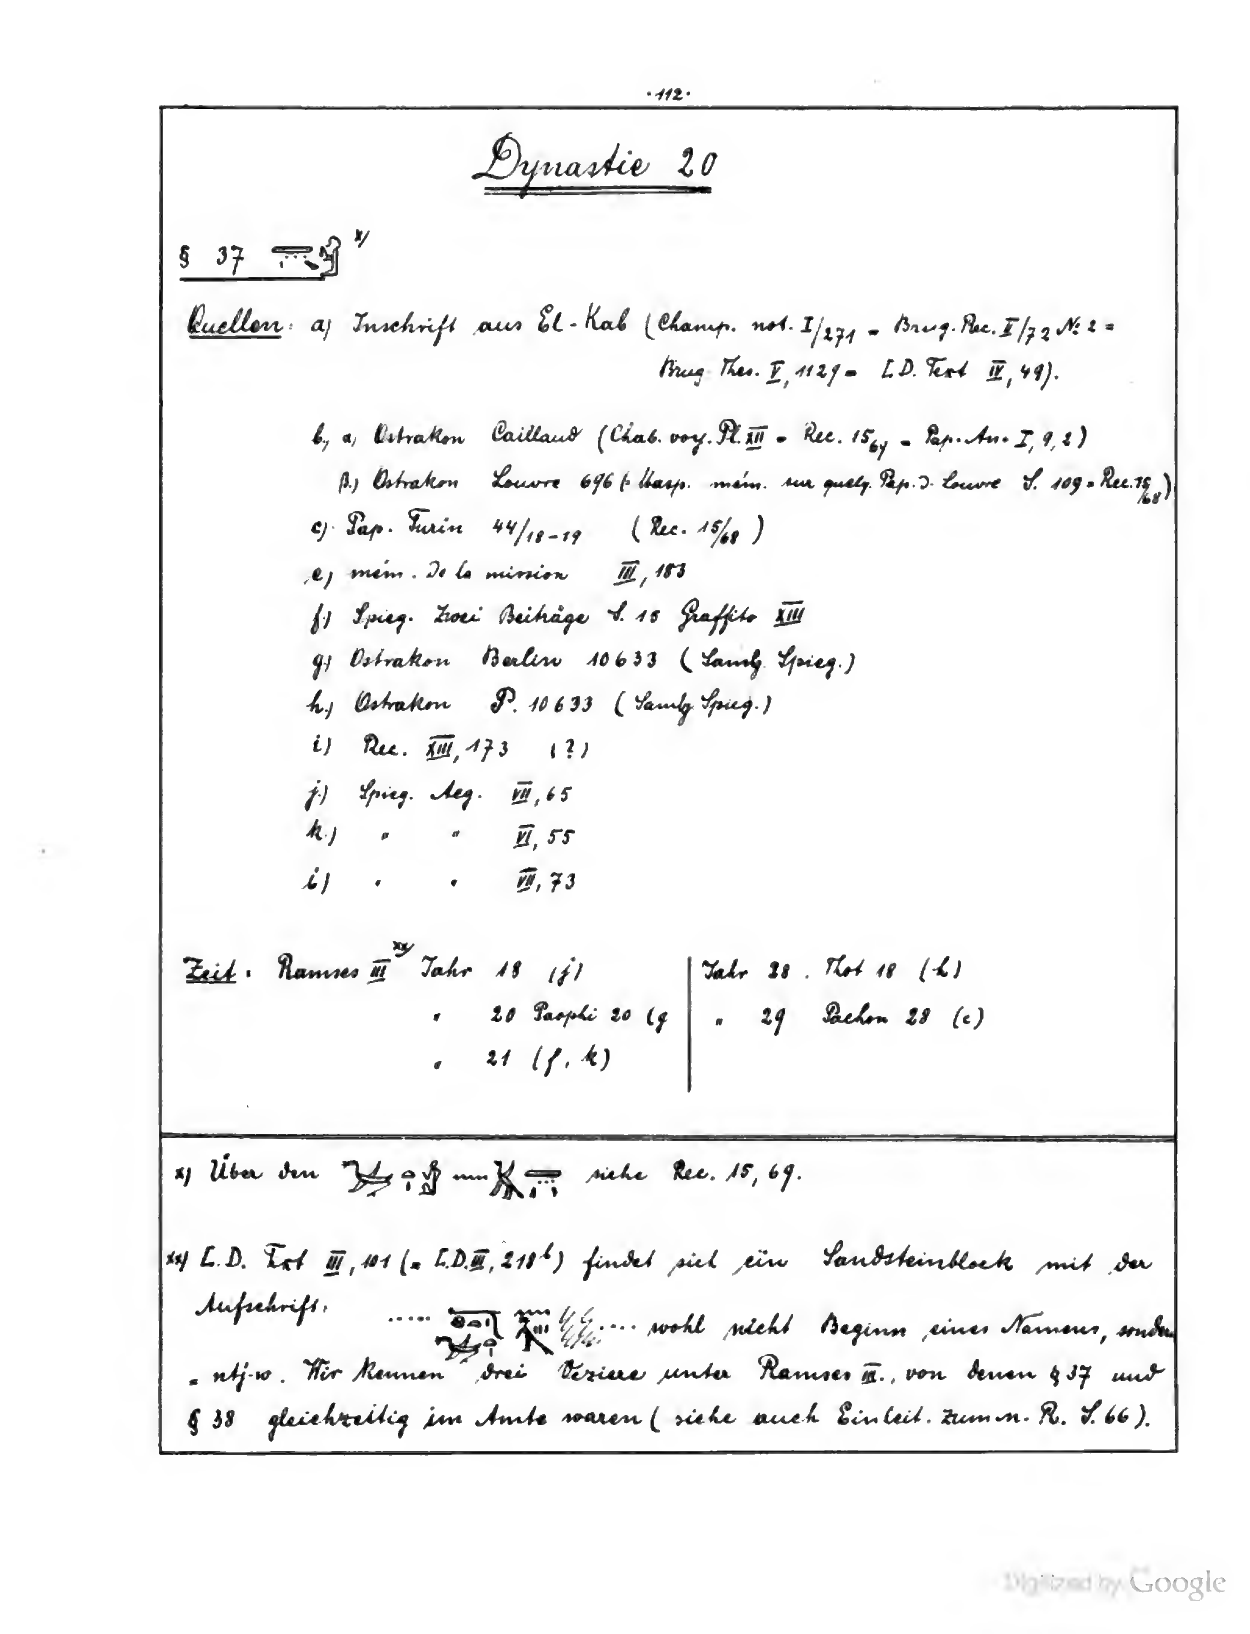 ·112·
Dynastie 20
§ 37 x)
Quellen: a) Inschrift aus El-Kab (Champ. not. I/271 = Brug. Rec. II/72 No 2 =
Brug Thes. V, 1129 = L.D. Text IV, 49).
b, α) Ostrakon Caillaud (Chab. voy. Pl. XII = Rec. 15,64 = Pap. An. I, 9, 2)
β.) Ostrakon Louvre 696 (= Masp. mém. sur quelq. Pap. d. Louvre S. 109 = Rec. 15/68)
c) Pap. Turin 44/18-19 (Rec. 15/68)
e) mém. de la mission III, 183
f.) Spieg. Zwei Beiträge S. 15 Graffito XIII
g) Ostrakon Berlin 10633 (Samlg. Spieg.)
h.) Ostrakon P. 10633 (Samlg Spieg.)
i) Rec. XIII, 173 (?)
j.) Spieg. Aeg. VII, 65
k.) " " VI, 55
i) " " VII, 73
Zeit: Ramses III xx) Jahr 18 (j)
" 20 Paophi 20 (g
" 21 (f, k)
Jahr 28. Thot 18 (h)
" 29 Pachon 28 (c)
x) Über den siehe Rec. 15, 69.
xx) L.D. Text III, 101 (= L.D. III, 218b) findet sich ein Sandsteinblock mit der
Aufschrift: ..... .... wohl nicht Beginn eines Namens, sondern
= ntj-w. Wir kennen drei Veziere unter Ramses III., von denen § 37 und
§ 38 gleichzeitig im Amte waren (siehe auch Einleit. zum n. R. S. 66).
Digitized by Google